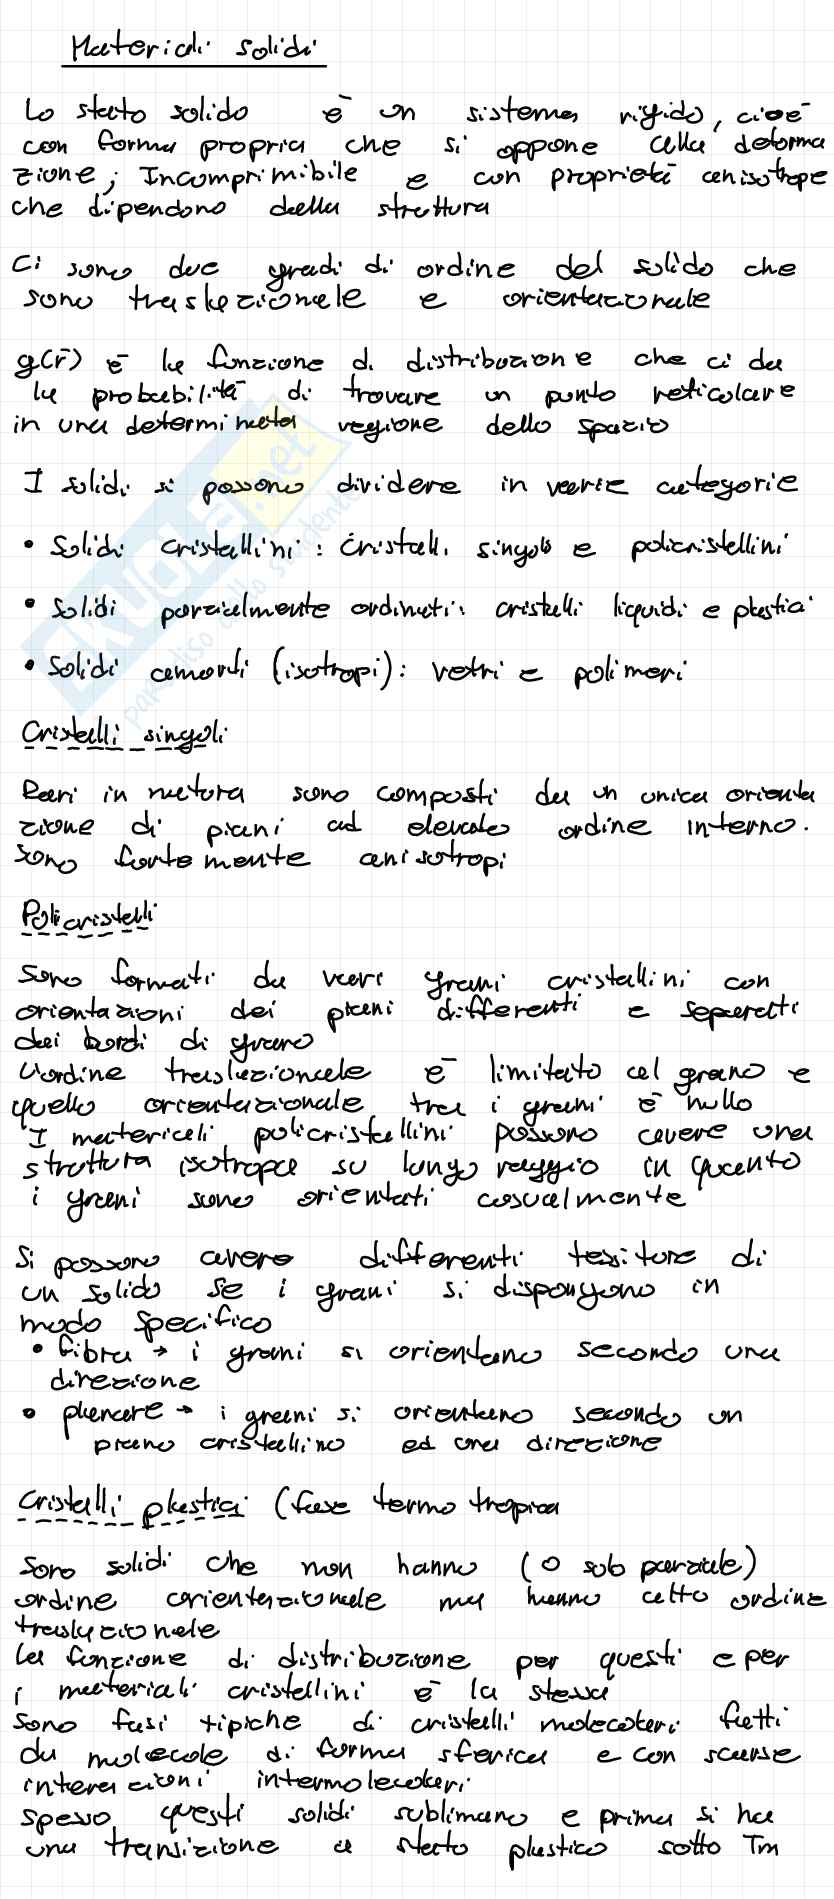 Materiali solidi
Lo stato solido è un sistema rigido, cioè
con forma propria che si oppone alla deforma
zione; Incomprimibile e con proprietà anisotrope
che dipendono dalla struttura
Ci sono due gradi di ordine del solido che
sono traslazionale e orientazionale
g(r̄) è la funzione di distribuzione che ci da
la probabilità di trovare un punto reticolare
in una determinata regione dello spazio
I solidi si possono dividere in varie categorie
• Solidi cristallini: cristalli singoli e policristallini
• Solidi parzialmente ordinati: cristalli liquidi e plastici
• Solidi amorfi (isotropi): vetri e polimeri
SKUOLA.net
paradiso dello studente
Cristalli singoli
Rari in natura sono composti da un unica orienta
zione di piani ad elevato ordine interno.
Sono fortemente anisotropi
Policristalli
Sono formati da vari grani cristallini con
orientazioni dei piani differenti e separati
dai bordi di grano
L'ordine traslazionale è limitato al grano e
quello orientazionale tra i grani è nullo
I materiali policristallini possono avere una
struttura isotropa su lungo raggio in quanto
i grani sono orientati casualmente
Si possono avere differenti tessiture di
un solido se i grani si dispongono in
modo specifico
• fibra → i grani si orientano secondo una
direzione
• planare → i grani si orientano secondo un
piano cristallino ed una direzione
Cristalli plastici (fase termotropica
Sono solidi che non hanno (o solo parziale)
ordine orientazionale ma hanno alto ordine
traslazionale
La funzione di distribuzione per questi e per
i materiali cristallini è la stessa
Sono fasi tipiche di cristalli molecolari fatti
da molecole di forma sferica e con scarse
interazioni intermolecolari
Spesso questi solidi sublimano e prima si ha
una transizione a stato plastico sotto Tm